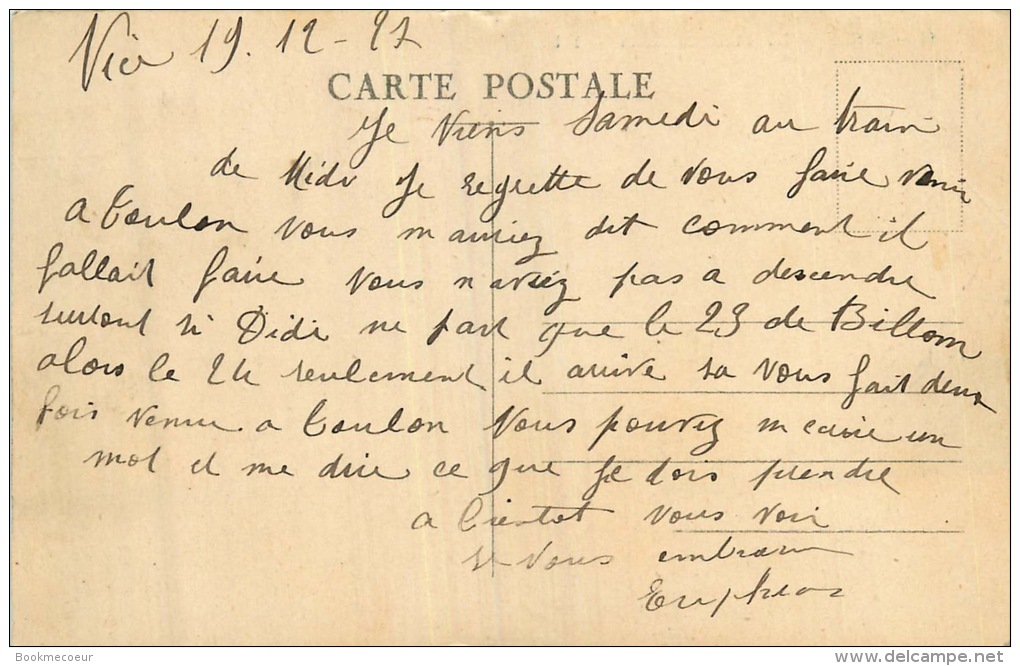 Vic 19.12-27
CARTE POSTALE
Je Viens Samedi au train
de Midi Je regrette de vous faire venir
a Toulon vous mauriez dit comment il
fallait faire vous naviez pas a descendre
surtout si Didi ne part que le 23 de Billom
alors le 24 seulement il arrive sa vous fait deux
fois venir a Toulon Vous pouvez mecrire un
mot et me dire ce que Je dois prendre
a Bientot vous voir
Je vous embrasse
Bookmecoeur
Delcampe.net